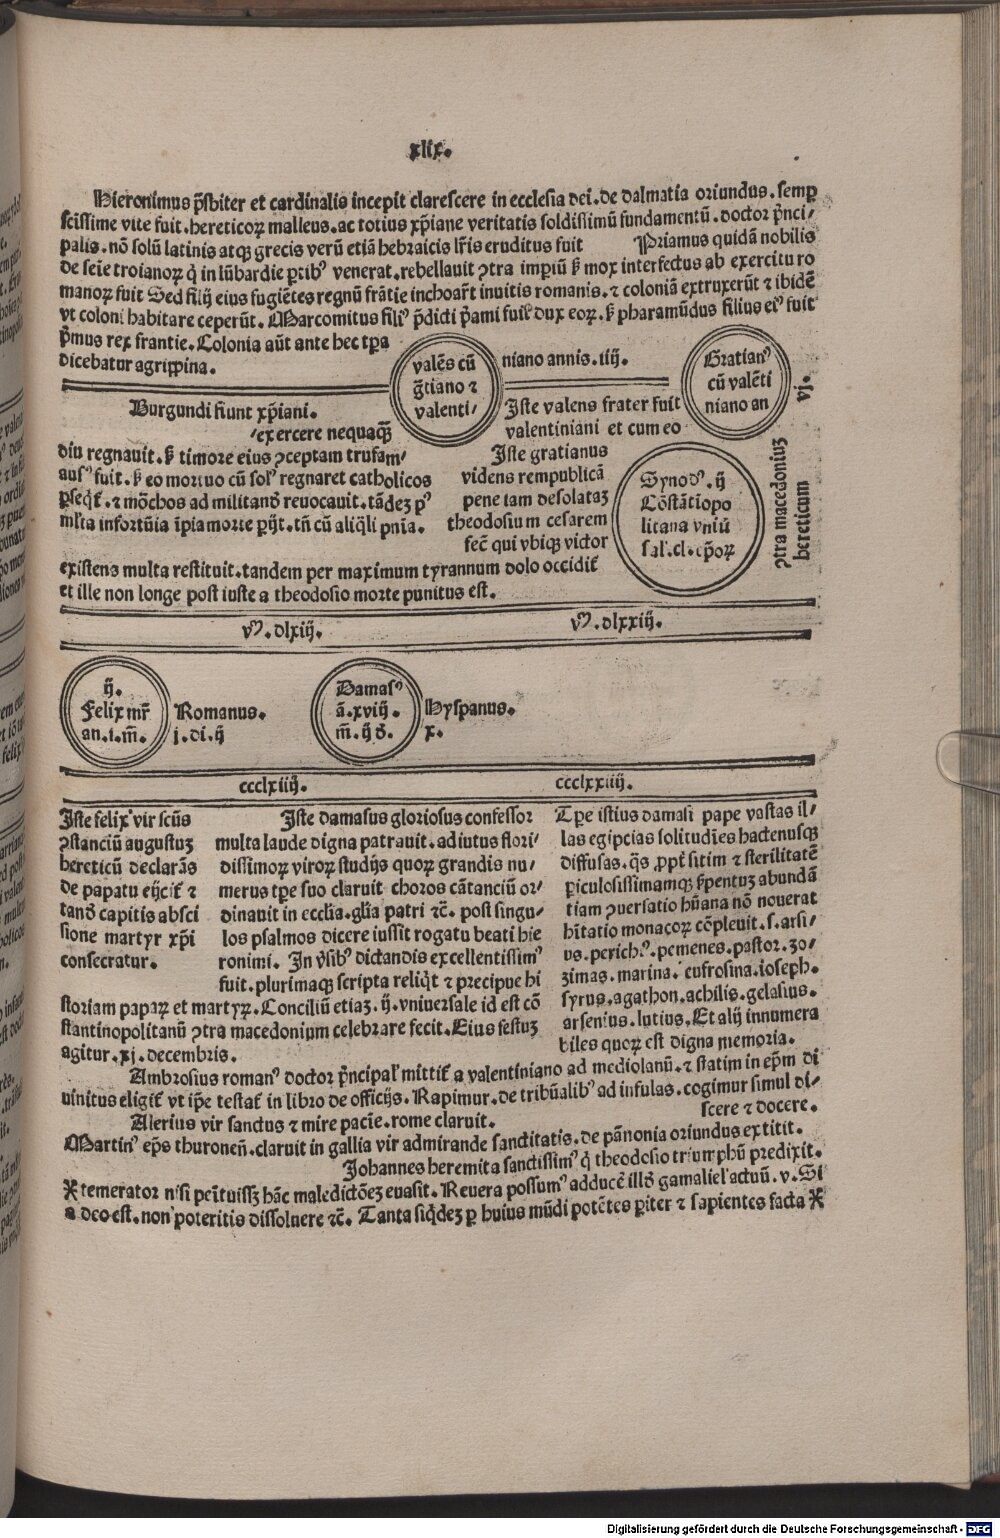 xlix.
Hieronimus p̄sbiter et cardinalis incepit clarescere in ecclesia dei. de dalmatia oriundus. semp
scissime vite fuit. hereticoꝝ malleus. ac totius xp̄iane veritatis soldissimū fundamentū. doctor p̄nci/
palis. nō solū latinis atqꝫ grecis verū etiā hebraicis lr̄is eruditus fuit Priamus quidā nobilis
de sēie troianoꝝ q̇ in lūbardie ꝑtibꝰ venerat. rebellauit ꝯtra imꝑiū ꝭ mox interfectus ab exercitu ro
manoꝝ fuit Sed filij eius fugiētes regnū frātie inchoar̄t inuitis romanis. ⁊ coloniā extruxerūt ⁊ ibidē
vt coloni habitare ceperūt. Marcomitus filiꝰ p̄dicti p̄ami fuit dux eoꝝ. ꝭ pharamūdus filius eiꝰ fuit
p̄mus rex frantie. Colonia aūt ante hec tꝑa
dicebatur agrippina.
valēs cū
g̃tiano ⁊
valenti/
niano annis. iiij.
Gratianꝰ
cū valēti
niano an
vj.
Burgundi fiunt xp̄iani.
Iste valens frater fuit
valentiniani et cum eo
/exercere nequaq̄ꝫ
diu regnauit. ꝭ timore eius ꝯceptam trufam/
ausꝰ fuit. ꝭ eo mortuo cū solꝰ regnaret catholicos
ꝑseq̇t̃. ⁊ mōchos ad militand̄ reuocauit. tādeꝫ pꝰ
ml̄ta infortūia īpia morte ꝑijt. tn̄ cū aliq̄li pn̄ia.
Iste gratianus
videns rempublicā
pene iam desolataꝫ
theodosium cesarem
fec̄ qui vbiqꝫ victor
Synodꝰ. ij
Cōstātiopo
litana vniū
sal. cl. ep̄oꝝ
ꝯtra macedoniuꝫ
hereticum
existens multa restituit. tandem per maximum tyrannum dolo occidit̃
et ille non longe post iuste a theodosio morte punitus est.
vͫ. dlxiij.
vͫ. dlxxiij.
ij.
Felix mr̄
an. i. m̄.
Romanus.
j. di. ij
Damasꝰ
ā. xviij.
m̄. ij d̄.
Hyspanus.
x.
ccclxiiij.
ccclxxiiij.
Iste felix vir scūs
ꝯstanciū augustuꝫ
hereticū declarās
de papatu eijcit̃ ⁊
tand̄ capitis absci
sione martyr xp̄i
consecratur.
Iste damasus gloriosus confessor
multa laude digna patrauit. adiutus flori/
dissimoꝝ viroꝝ studijs quoꝝ grandis nu/
merus tꝑe suo claruit choros cātanciū or/
dinauit in ecclīa. gl̄ia patri ⁊c̄. post singu/
los psalmos dicere iussit rogatu beati hie
ronimi. In v̄sibꝰ dictandis excellentissimꝰ
fuit. plurimaqꝫ scripta reliq̇t ⁊ precipue hi
storiam papaꝝ et martyꝝ. Conciliū etiaꝫ. ij. vniuersale id est cō
stantinopolitanū ꝯtra macedonium celebrare fecit. Eius festuꝫ
agitur. xj. decembris.
Tꝑe istius damasi pape vastas il/
las egipcias solitudīes hactenusqꝫ
diffusas. q̄s ꝓpt̃ sitim ⁊ sterilitatē
ꝑiculosissimamqꝫ ẜpentuꝫ abundā
tiam ꝯuersatio hūana nō nouerat
hītatio monacoꝝ cōpleuit. s. arsi/
us. pemenes. pastor. zo/
zimas. marina. eufrosina. ioseph.
syrus. agathon. achilis. gelasius.
arsenius. lutius. Et alij innumera
biles quoꝝ est digna memoria.
Ambrosius romanꝰ doctor p̄ncipal̄ mittit̃ a valentiniano ad mediolanū. ⁊ statim in ep̄m di
uinitus eligit̃ vt ip̄e testat̃ in libro de officijs. Rapimur. de tribūalibꝰ ad infulas. cogimur simul di/
scere ⁊ docere.
Alerius vir sanctus ⁊ mire pacīe. rome claruit.
Martinꝰ ep̄s thuronen̄. claruit in gallia vir admirande sanctitatis. de pānonia oriundus extitit.
Johannes heremita sanctissimꝰ q̇ theodosio triumphū predixit.
temerator nisi penituissꝫ hāc maledictōeꝫ euasit. Reuera possumꝰ adducē illd̄ gamaliel actuū. v. Si
a deo est. non poteritis dissoluere ⁊c̄. Tanta siq̇deꝫ ꝑ huius mūdi potētes ꝑiter ⁊ sapientes facta
Digitalisierung gefördert durch die Deutsche Forschungsgemeinschaft - DFG